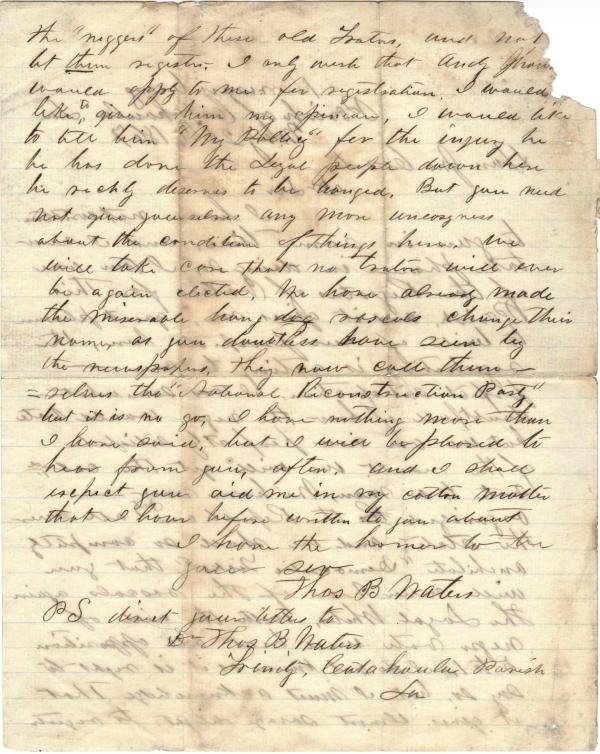 the "niggers" of these old Trators, and not
let them register, I only wish that Andy John
would apply to me for registration. I would
like to give him my opinion, I would like
to tell him "My Policy" for the injury he
he has done the Legal people down here
he richly deserves to be hanged, But you need
not give yourselves any more uneasyness
about the condition of things here. We
will take care that no trator will ever
be again elected, We have already made
the miserable hang dog rascals change their
name, as you doubtless have seen by
the newspapers, they now call them-
=selves the "National Reconstruction Party"
but it is no go, I have nothing more than
I have said, but I will be pleased to
hear from you, often and I shall
expect you aid me in my cotton matter
that I have before written to you about
I have the honor to be
your svt
Thos B Waters
PS direct your letters to
Dr Thos. B Waters
Trinity, Catahoula Parish
La